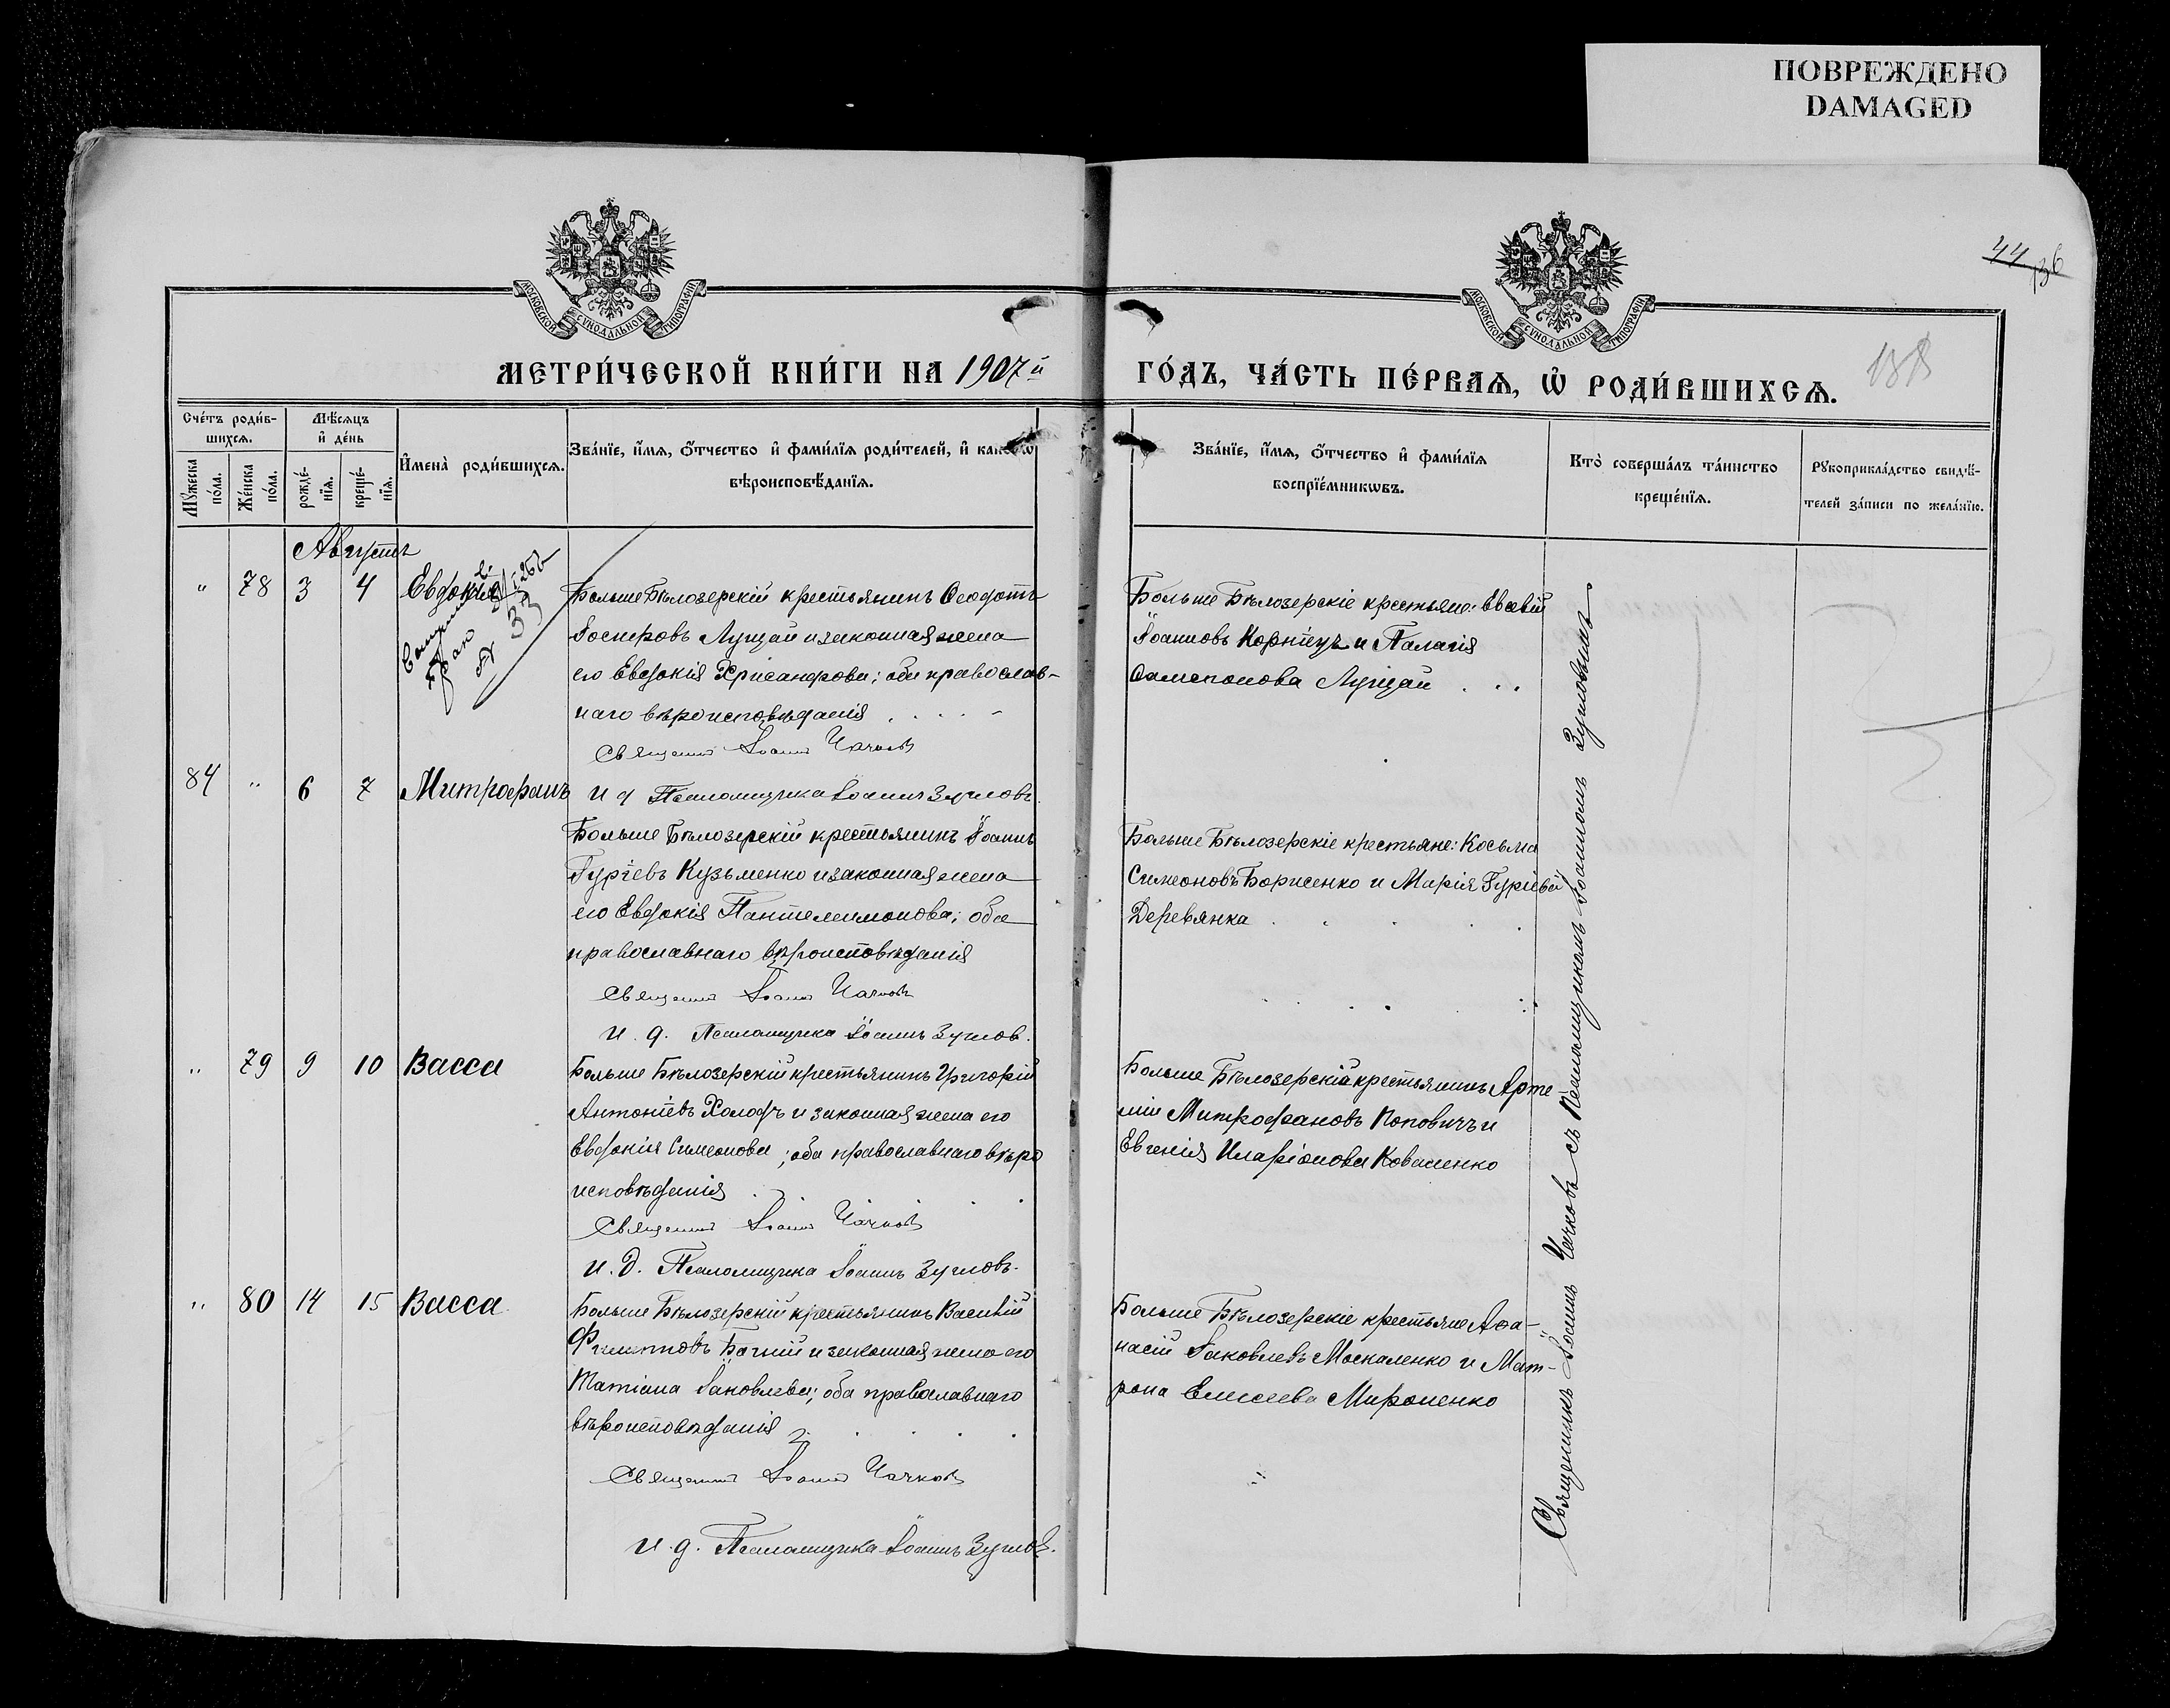 ПОВРЕЖДЕНО
DAMAGED
МОСКОВСКОЙ СѴНОДАЛЬНОЙ ТИПОГРАФІИ
МОСКОВСКОЙ СѴНОДАЛЬНОЙ ТИПОГРАФІИ
44 136
МЕТРИ́ЧЕСКОЙ КНИ́ГИ НА 1907й
ГО́ДЪ, ЧА́СТЬ ПЕ́РВАѦ, Ѡ҆ РОДИ́ВШИХСѦ.
Сче́тъ роди́в-
шихсѧ.
Мѣ́сѧцъ
и҆ де́нь
Мꙋ́жеска по́ла.
Же́нска по́ла.
рожде́-
нїѧ.
креще́-
нїѧ.
И҆мена̀ роди́вшихсѧ.
Зва́нїе, и҆́мѧ, ѻ҆́тчество и҆ фами́лїѧ роди́телей, и҆ какогѡ
вѣроисповѣ́данїѧ.
Зва́нїе, и҆́мѧ, ѻ҆́тчество и҆ фами́лїѧ
воспрїе́мникѡвъ.
Кто̀ соверша́лъ та́инство
креще́нїѧ.
Рꙋкоприкла́дство свидѣ́-
телей за́писи по жела́нїю.
Августъ
" 78 3 4 Евдокія
Больше Бѣлозерскій крестьянинъ Ѳеодотъ
Іосифовъ Лущай и законная жена
его Евдокія Хрисанфова; оба православ-
наго вѣроисповѣданія
Священникъ Іоаннъ Чачковъ
И д Псаломщика Іоаннъ Зугловъ.
Больше Бѣлозерскіе крестьяне: Евсевій
Іоанновъ Корнѣцъ и Палагія
Самсонова Лущай
84 " 6 7 Митрофанъ
Больше Бѣлозерскій крестьянинъ Іоаннъ
Гуріевъ Кузьменко и законная жена
его Евдокія Пантелеимонова; оба
православнаго вѣроисповѣданія
Священникъ Іоаннъ Чачковъ
И. д. Псаломщика Іоаннъ Зуглов.
Больше Бѣлозерскіе крестьяне: Косьма
Симеоновъ Борисенко и Марія Гуріева
Деревянка
" 79 9 10 Васса
Больше Бѣлозерскій крестьянинъ Григорій
Антоніевъ Холодъ и законная жена его
Евдокія Симеонова; оба православнаго вѣро
исповѣданія
Священникъ Іоаннъ Чачковъ
И. д. Псаломщика Іоаннъ Зугловъ.
Больше Бѣлозерскій крестьянинъ Арте
мій Митрофановъ Поповичъ и
Евгенія Иларіонова Коваленко
" 80 14 15 Васса
Больше Бѣлозерскій крестьянинъ Василій
Филипповъ Бочкій и законная жена его
Татіана Іаковлева; оба православнаго
вѣроисповѣданія
Священникъ Іоаннъ Чачковъ
И. д. Псаломщика Іоаннъ Зуглов.
Больше Бѣлозерскіе крестьяне Аѳа-
насій Іаковлевъ Москаленко и Мат-
рона Елисеева Мироненко
Священникъ Іоаннъ Чачковъ съ Псаломщикомъ Іоанномъ Зугловымъ